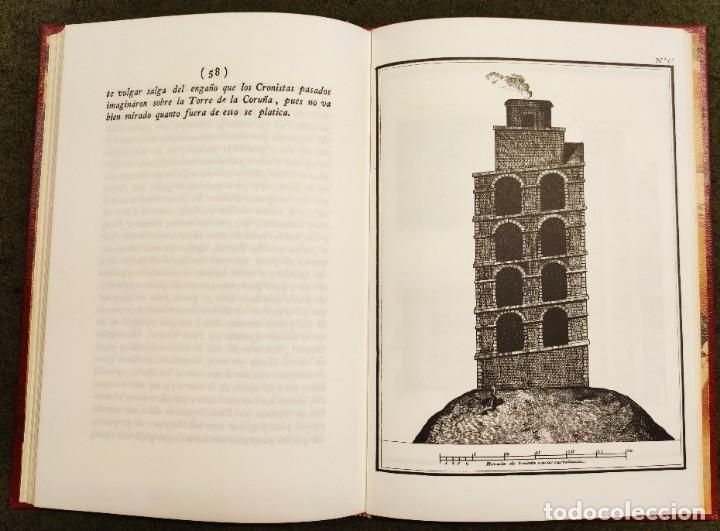 ( 58 )
te vulgar salga del engaño que los Cronistas pasados
imagináron sobre la Torre de la Coruña, pues no va
bien mirado quanto fuera de esto se platica.
todocoleccion
todocoleccion.net